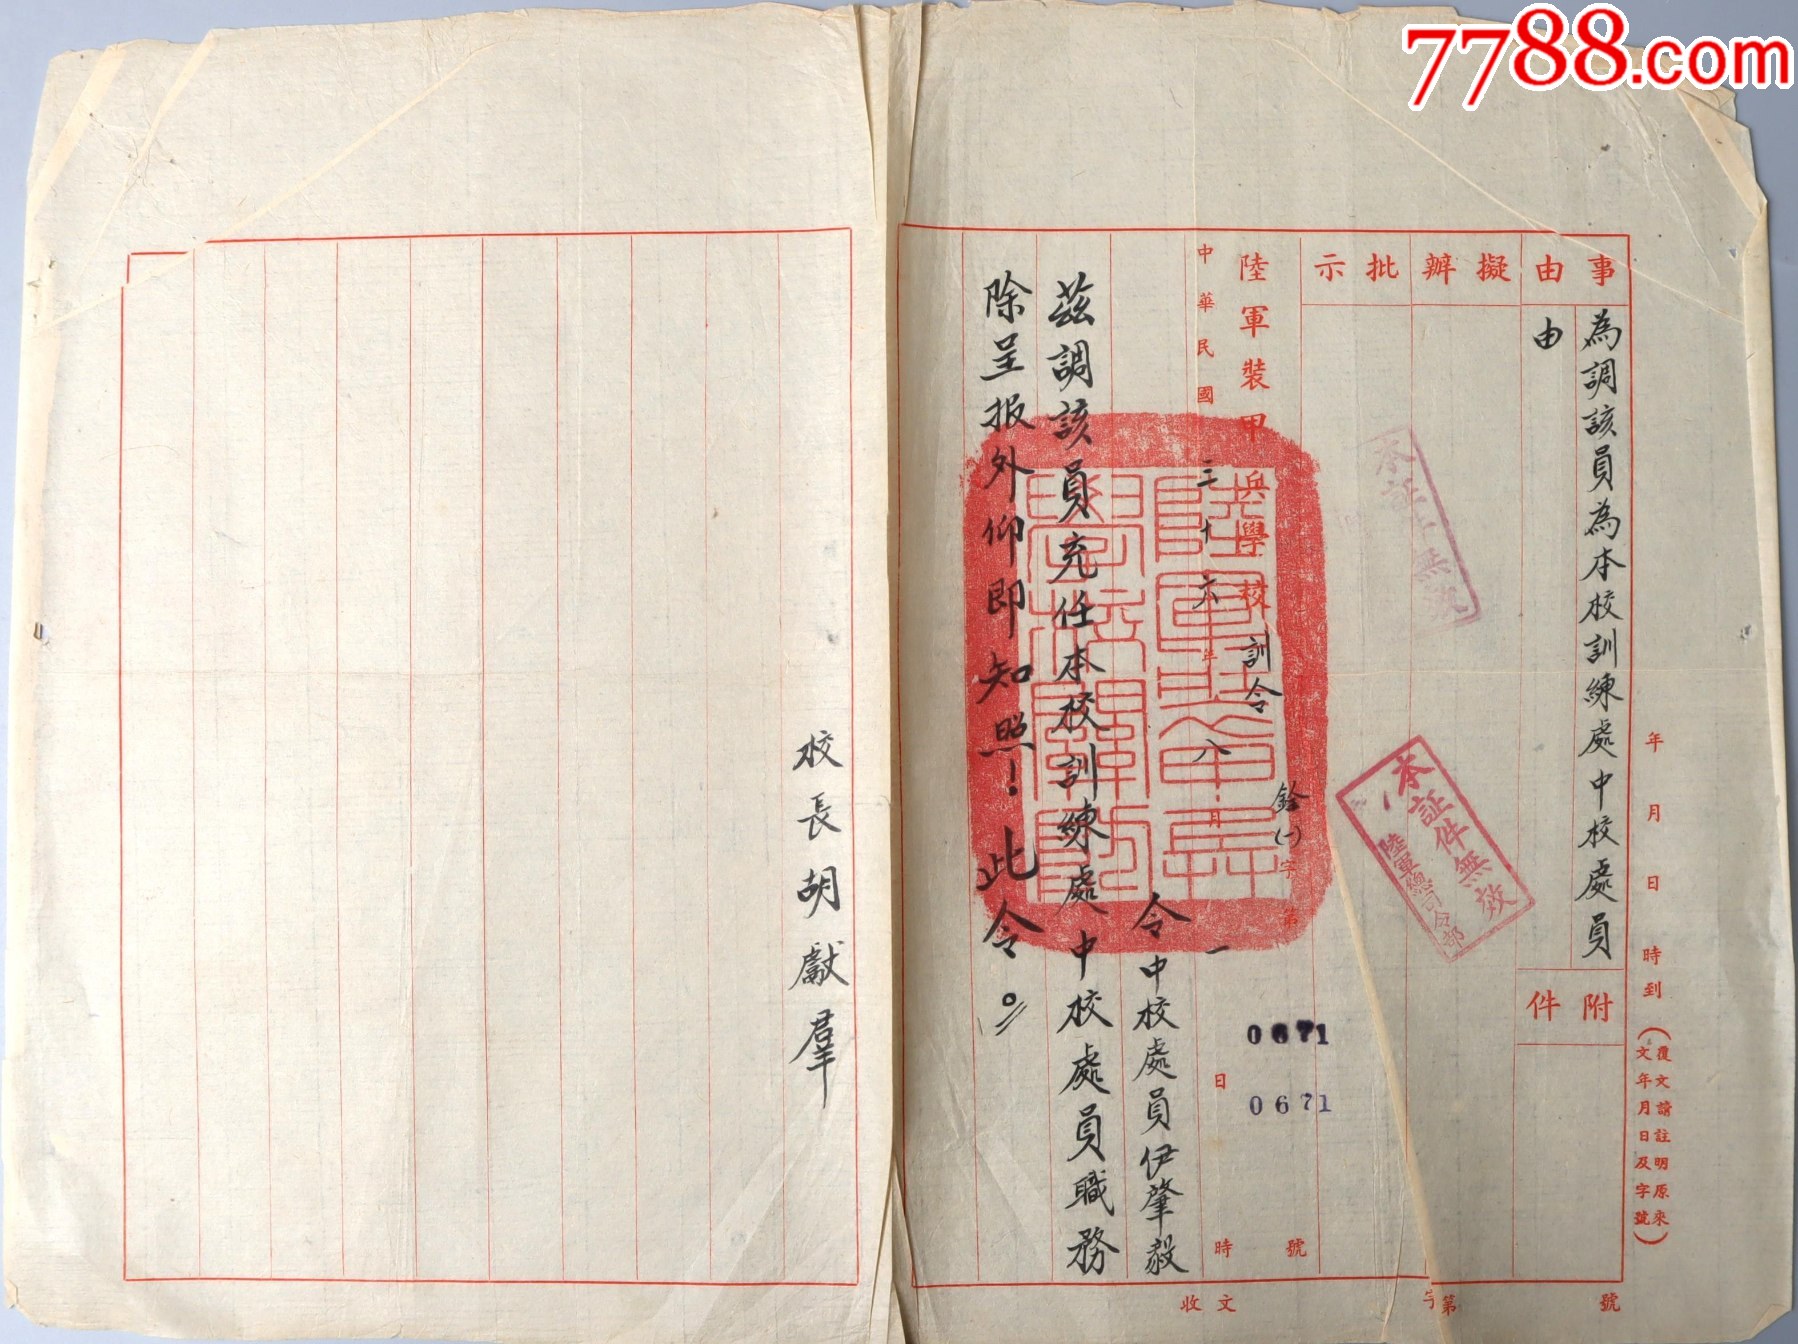 7788.com
年 月 日 時到
(覆文請註明原來
文年月日及字號)
事由
為調該員為本校訓練處中校處員
由
附件
擬辦
批示
本証件無效
本証件無效
陸軍總司令部
陸軍裝甲兵學校 訓令
銓(一)字第 號
0671
0671
中華民國三十六年八月一日 時
令中校處員伊肇毅
茲調該員充任本校訓練處中校處員職務
除呈报外仰即知照!此令。
校長胡獻羣
收文 字第 號